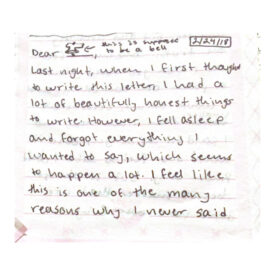 this is suppose 2/24/18
Dear , to be a bell
Last night, when I first thought
to write this letter, I had a
lot of beautifully honest things
to write. However, I fell asleep
and forgot everything I
wanted to say, which seems
to happen a lot. I feel like
this is one of the many
reasons why I never said